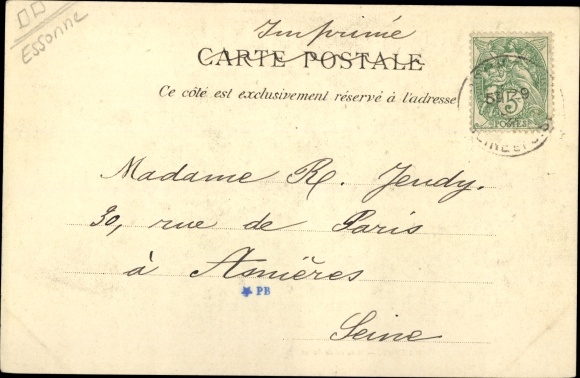 Essonne
Imprimé
CARTE POSTALE
Ce côté est exclusivement réservé à l'adresse
5
POSTES
Madame R. Jeudy.
30, rue de Paris
à Asnières
PB
Seine